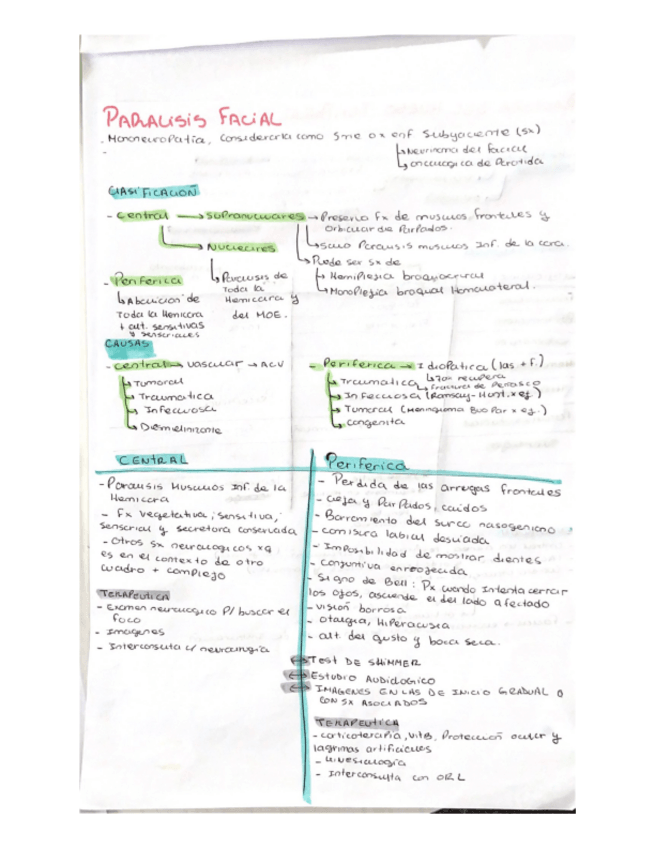 PARALISIS FACIAL
- Mononeuropatia, considerarla como sme o x enf subyacente (sx)
↳ Neurinoma del facial
↳ oncologica de Parotida
CLASIFICACIÓN
- Central → Supranucleares → Preserva Fx de musculos frontales y
orbicular de Parpados.
↳ solo Paralisis musculos Inf. de la cara.
↳ Puede ser sx de
↳ Hemiplegia braquiocrural
↳ Monoplegia braquial Homolateral.
↳ Nucleares
↳ Paralisis de
Toda la
Hemicara y
del MOE.
- Periferica
↳ Abolicion de
Toda la Hemicara
+ alt. sensitivas
y sensoriales
CAUSAS
- Central → vascular → ACV
↳ Tumoral
↳ Traumatica
↳ Infecciosa
↳ Diemelinizante
- Periferica → Idiopatica (las + F.)
↳ 70% recupera
↳ Traumatica ↳ Fractura de Peñasco
↳ Infecciosa (Ramsay-Hunt. x ej.)
↳ Tumoral (Meningioma x ej.)
↳ congenita
CENTRAL
- Paralisis Musculos Inf. de la
Hemicara
- Fx vegetativa, sensitiva,
sensorial y secretora conservada
- Otros sx neurologicos xq
es en el contexto de otro
cuadro + complejo
TERAPEUTICA
- Examen neurologico P/ buscar el
foco
- Imagenes
- Interconsulta c/ neurocirugia
Periferica
- Perdida de las arrugas frontales
- ceja y Parpados, caidos
- Borramiento del surco nasogeniano
- comisura labial desviada
- Imposibilidad de mostrar dientes
- conjuntiva enrojecida
- Signo de Bell: Px cuando Intenta cerrar
los ojos, asciende el del lado afectado
- visión borrosa
- otalgia, Hiperacusia
- alt. del gusto y boca seca.
↔ Test DE SHIMMER
↔ Estudio AUDIOLOGICO
↔ IMAGENES EN LAS DE INICIO GRADUAL O
CON SX ASOCIADOS
TERAPEUTICA
- corticoterapia, vitB, Protección ocular y
lagrimas artificiales
- Kinesiologia
- Interconsulta con ORL